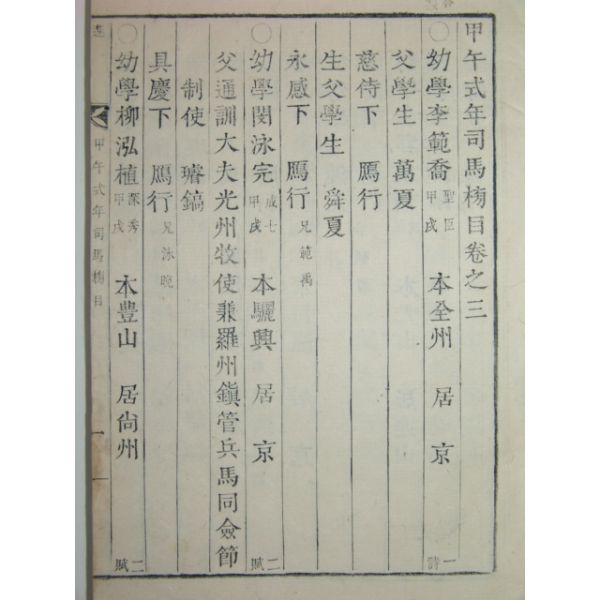 甲午式年司馬榜目卷之三
○幼學李範喬 聖臣 甲戌 本全州 居京 一詩
父學生 萬夏
慈侍下 鴈行
生父學生 舜夏
永感下 鴈行 兄範禹
○幼學閔泳完 成七 甲戌 本驪興 居京 二賦
父通訓大夫光州牧使兼羅州鎭管兵馬同僉節
制使 璿鎬
具慶下 鴈行 兄泳晩
○幼學柳泓植 深秀 甲戌 本豊山 居尙州 二賦
甲午式年司馬榜目 一